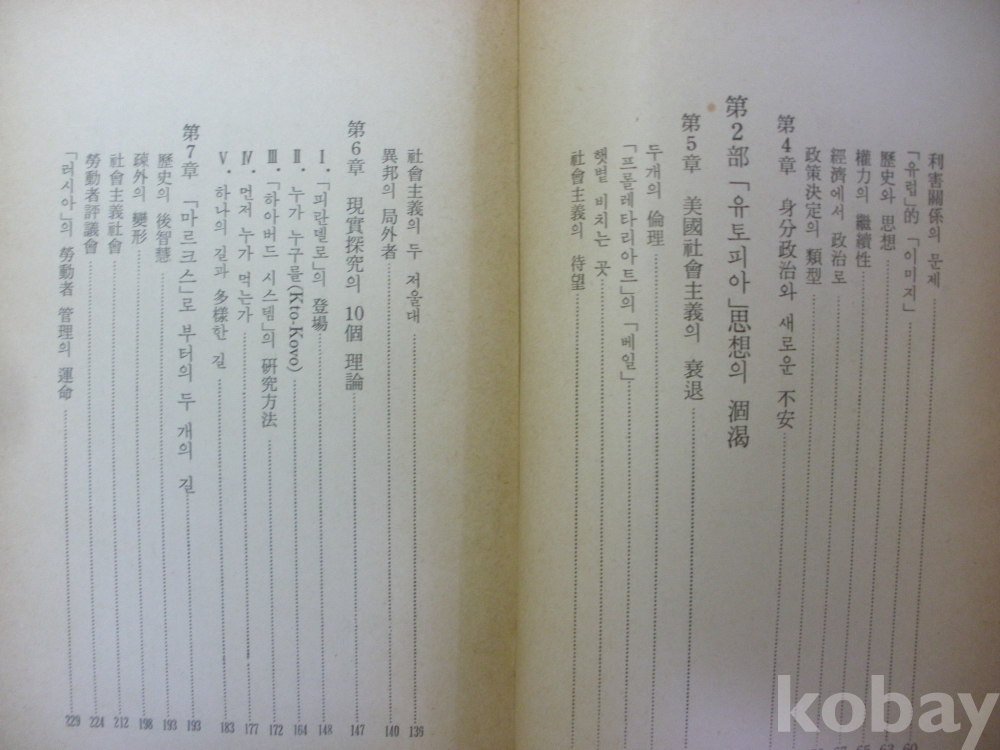 利害關係의 문제
「유럽」的 「이미지」
歷史와 思想
權力의 繼續性
經濟에서 政治로
政策決定의 類型
第4章 身分政治와 새로운 不安
第2部 「유토피아」思想의 涸渴
第5章 美國社會主義의 衰退
두개의 倫理
「프롤레타리아트」의 「베일」
햇볕 비치는 곳
社會主義의 待望
社會主義의 두 저울대 136
異邦의 局外者 140
第6章 現實探究의 10個 理論 147
Ⅰ・「피란델로」의 登場 148
Ⅱ・누가 누구를(Kto-Kovo) 164
Ⅲ・「하아버드 시스템」의 硏究方法 172
Ⅳ・먼저 누가 먹는가 177
Ⅴ・하나의 길과 多樣한 길 183
第7章 「마르크스」로 부터의 두 개의 길 193
歷史의 後智慧 193
疎外의 變形 198
社會主義社會 212
勞動者評議會 224
「러시아」의 勞動者 管理의 運命 229
kobay